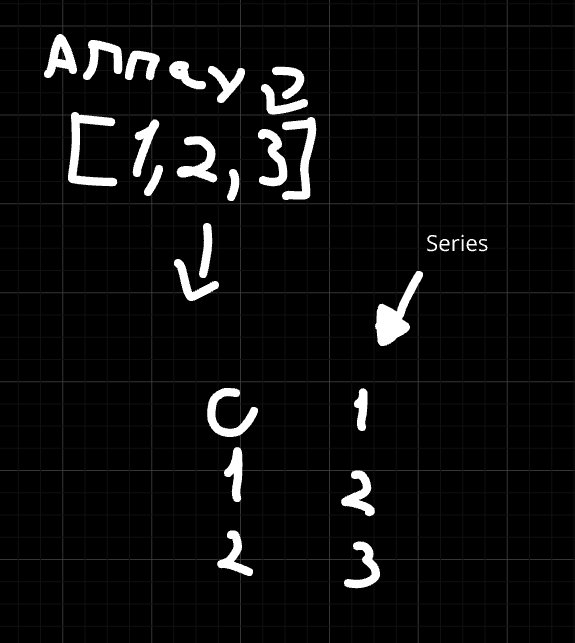 Array 2
[1,2,3]
Series
0 1
1 2
2 3